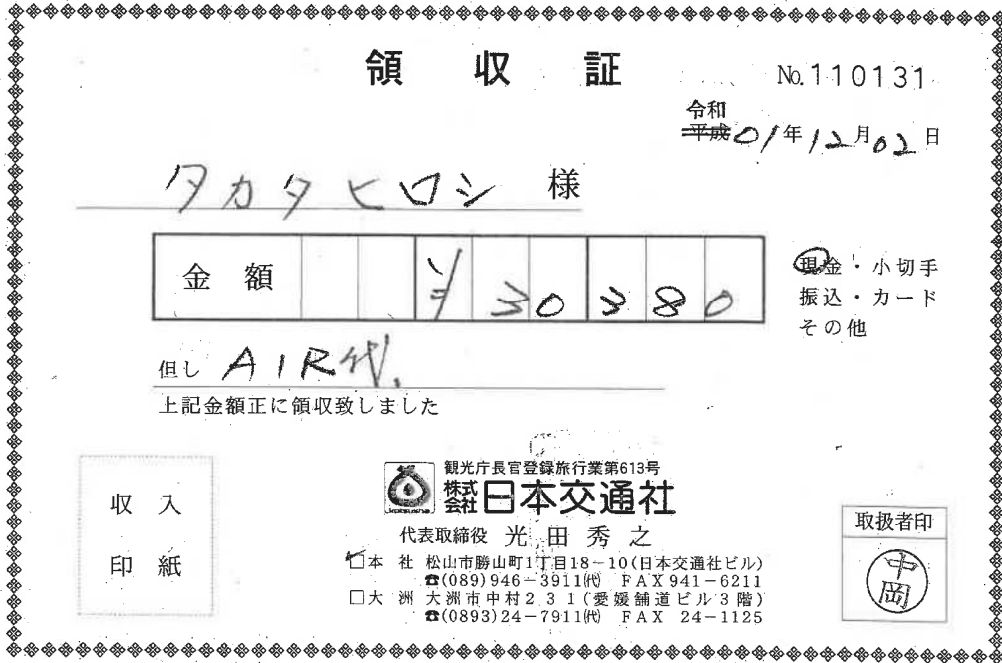 領収証
No.110131
令和
平成 01年12月02日
タカタヒロシ 様
金額 ¥30380
現金・小切手
振込・カード
その他
但し AIR代.
上記金額正に領収致しました
収入
印紙
観光庁長官登録旅行業第613号
株式会社 日本交通社
代表取締役 光田秀之
□本 社 松山市勝山町1丁目18-10(日本交通社ビル)
☎(089)946-3911㈹ FAX941-6211
□大 洲 大洲市中村231(愛媛舗道ビル3階)
☎(0893)24-7911㈹ FAX 24-1125
取扱者印
中岡